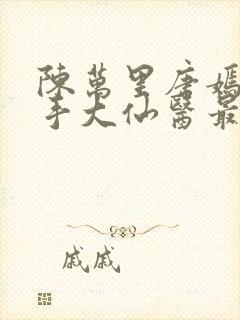 陳萬里唐嫣
手大仙醫最
戚戚